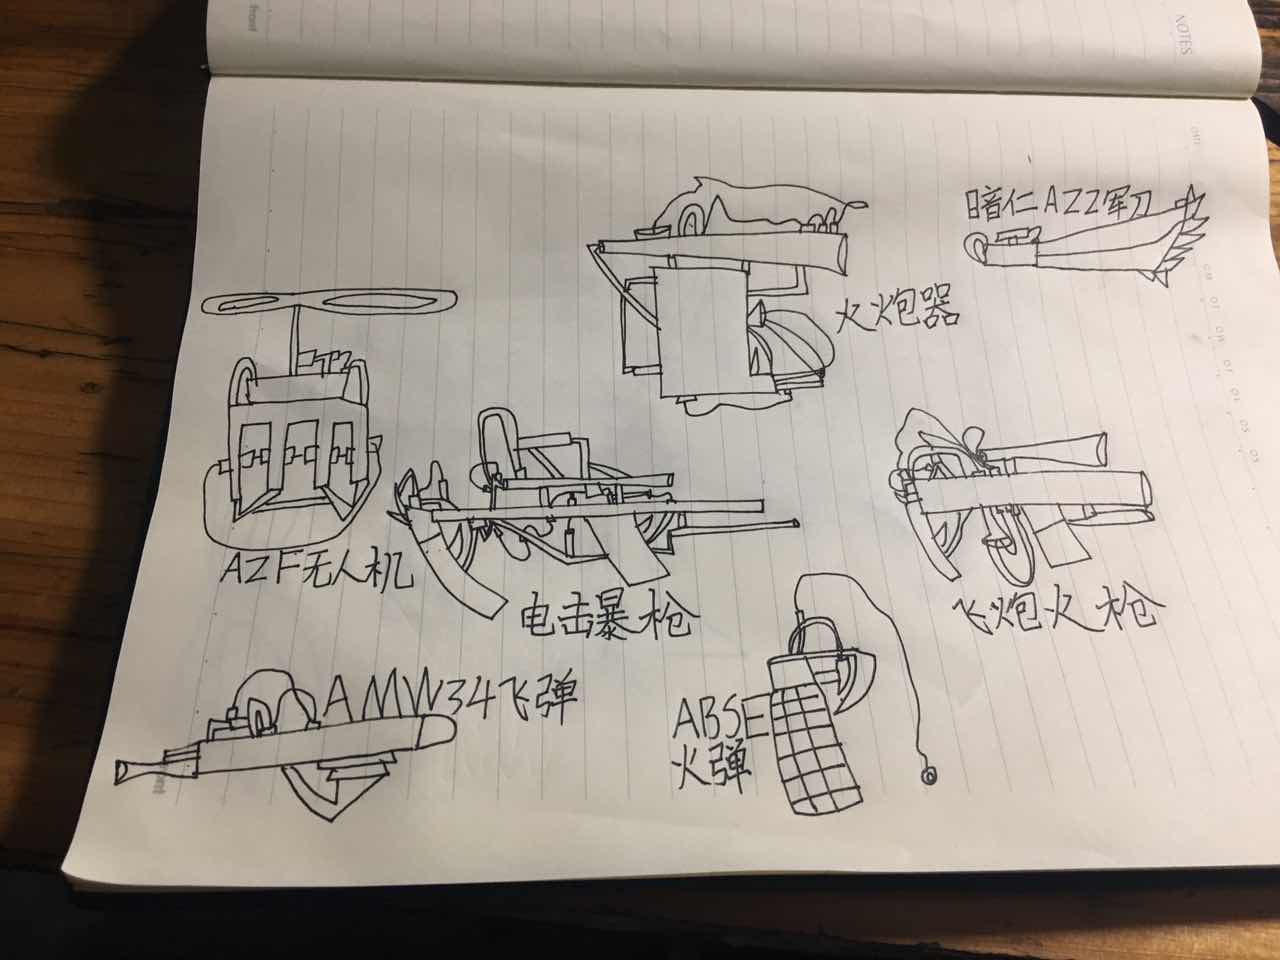 front
NOTES
暗仁AZZ军刀
火炮器
AZF无人机
电击暴枪
飞炮火枪
AMW34飞弹
ABSE
火弹